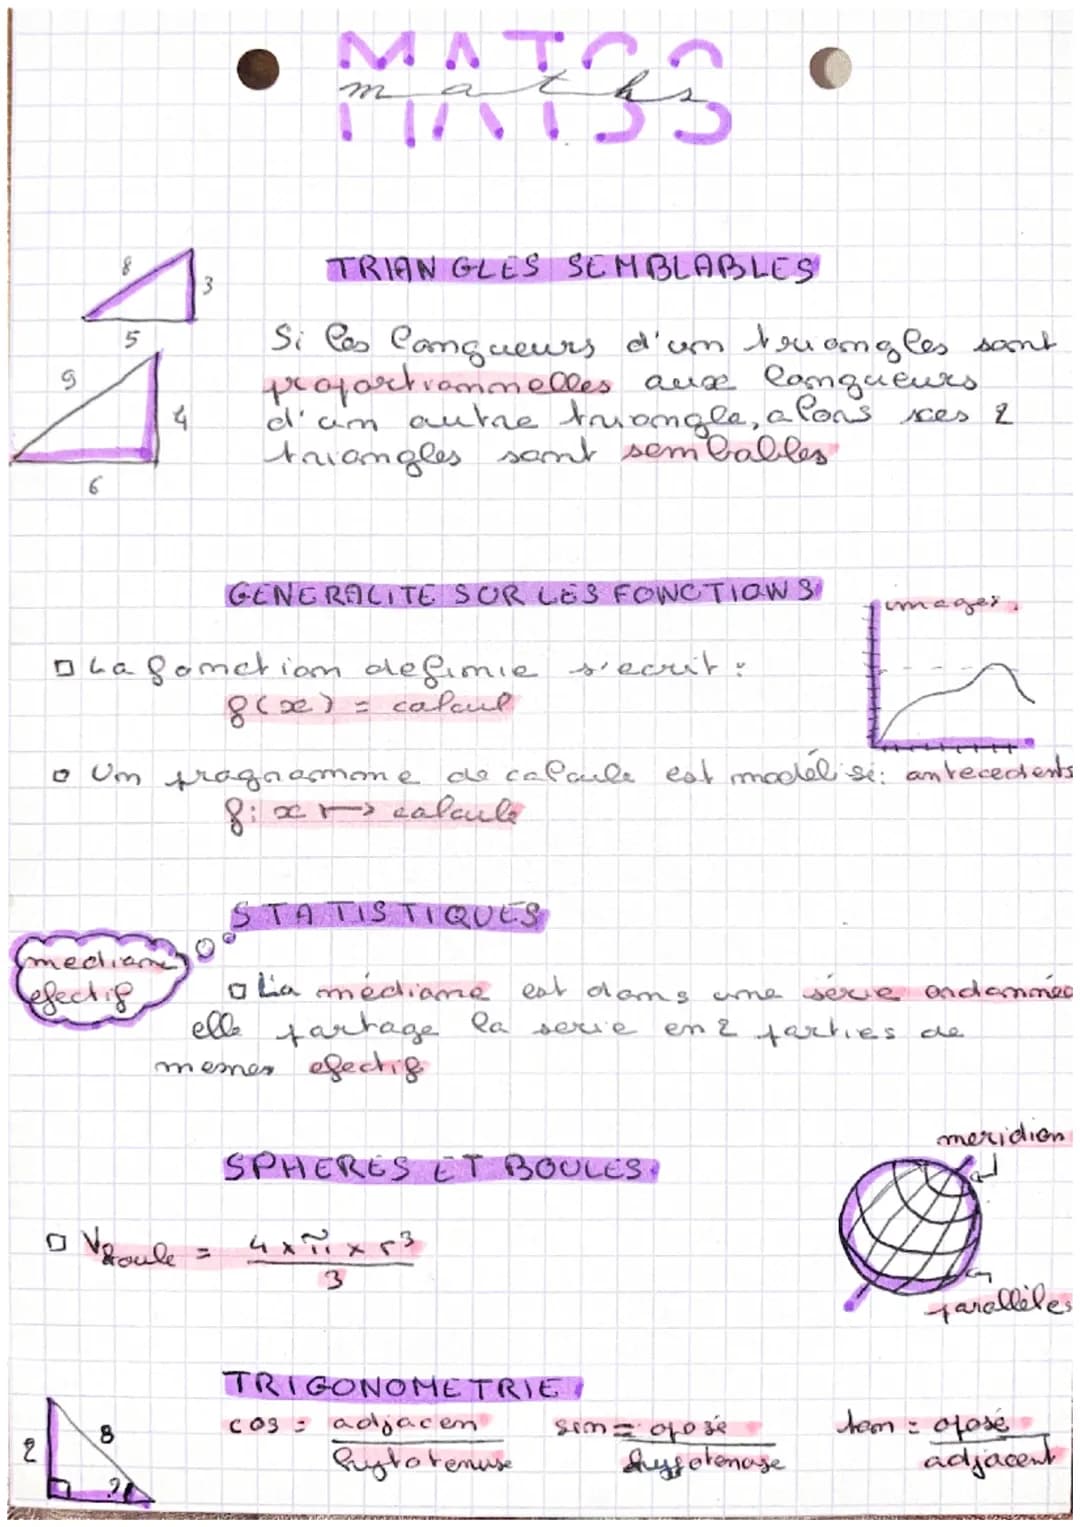 maths
TRIANGLES SEMBLABLES
8
3
5
Si les longueurs d'un truongles sont
9
proportionnelles aux longueurs
4
d'un autre truongle, alors ces 2
triongles sont sembables
6
GENERALITE SUR LES FONCTIONS
images
□ La fonction definie s'ecrit :
f(x) = calcul
□ Un programme de calcule est modélisé:
antecedents
f: x ↦ calcule
STATISTIQUES
mediane
efectif
□ La médiane est dans une série ordonnée
elle partage la serie en 2 parties de
memes efectif
meridien
SPHERES ET BOULES
□ Vboule = 4 x π x r³
3
parallèles
TRIGONOMETRIE
cos = adjacen
hypotenuse
sin = oposé
hypotenuse
tan = oposé
adjacent
8
2
?